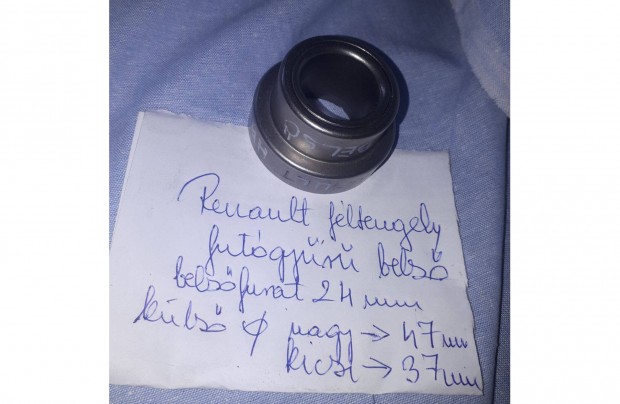 Renault féltengely
futógyűrű belső
belsőfurat 24 mm
külső ϕ nagy → 47 mm
kicsi → 37 mm